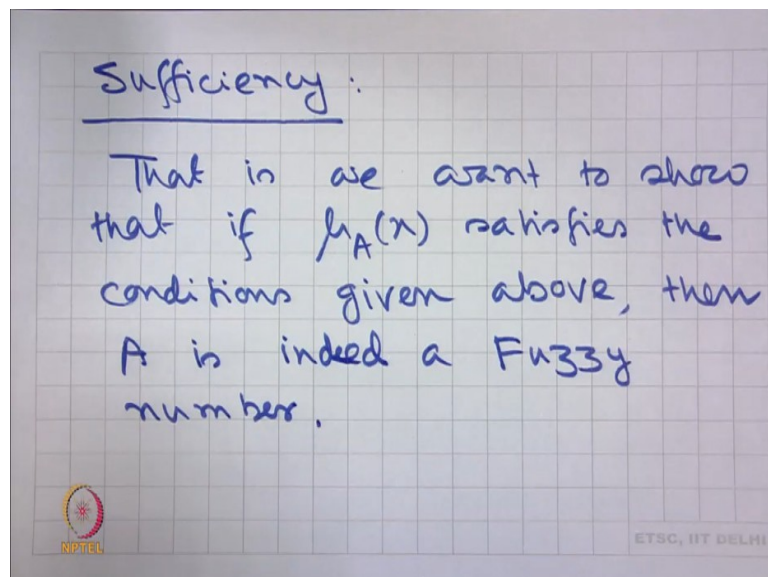 Sufficiency :
That is we want to show
that if μ_A(x) satisfies the
conditions given above, then
A is indeed a Fuzzy
number.
NPTEL
ETSC, IIT DELHI